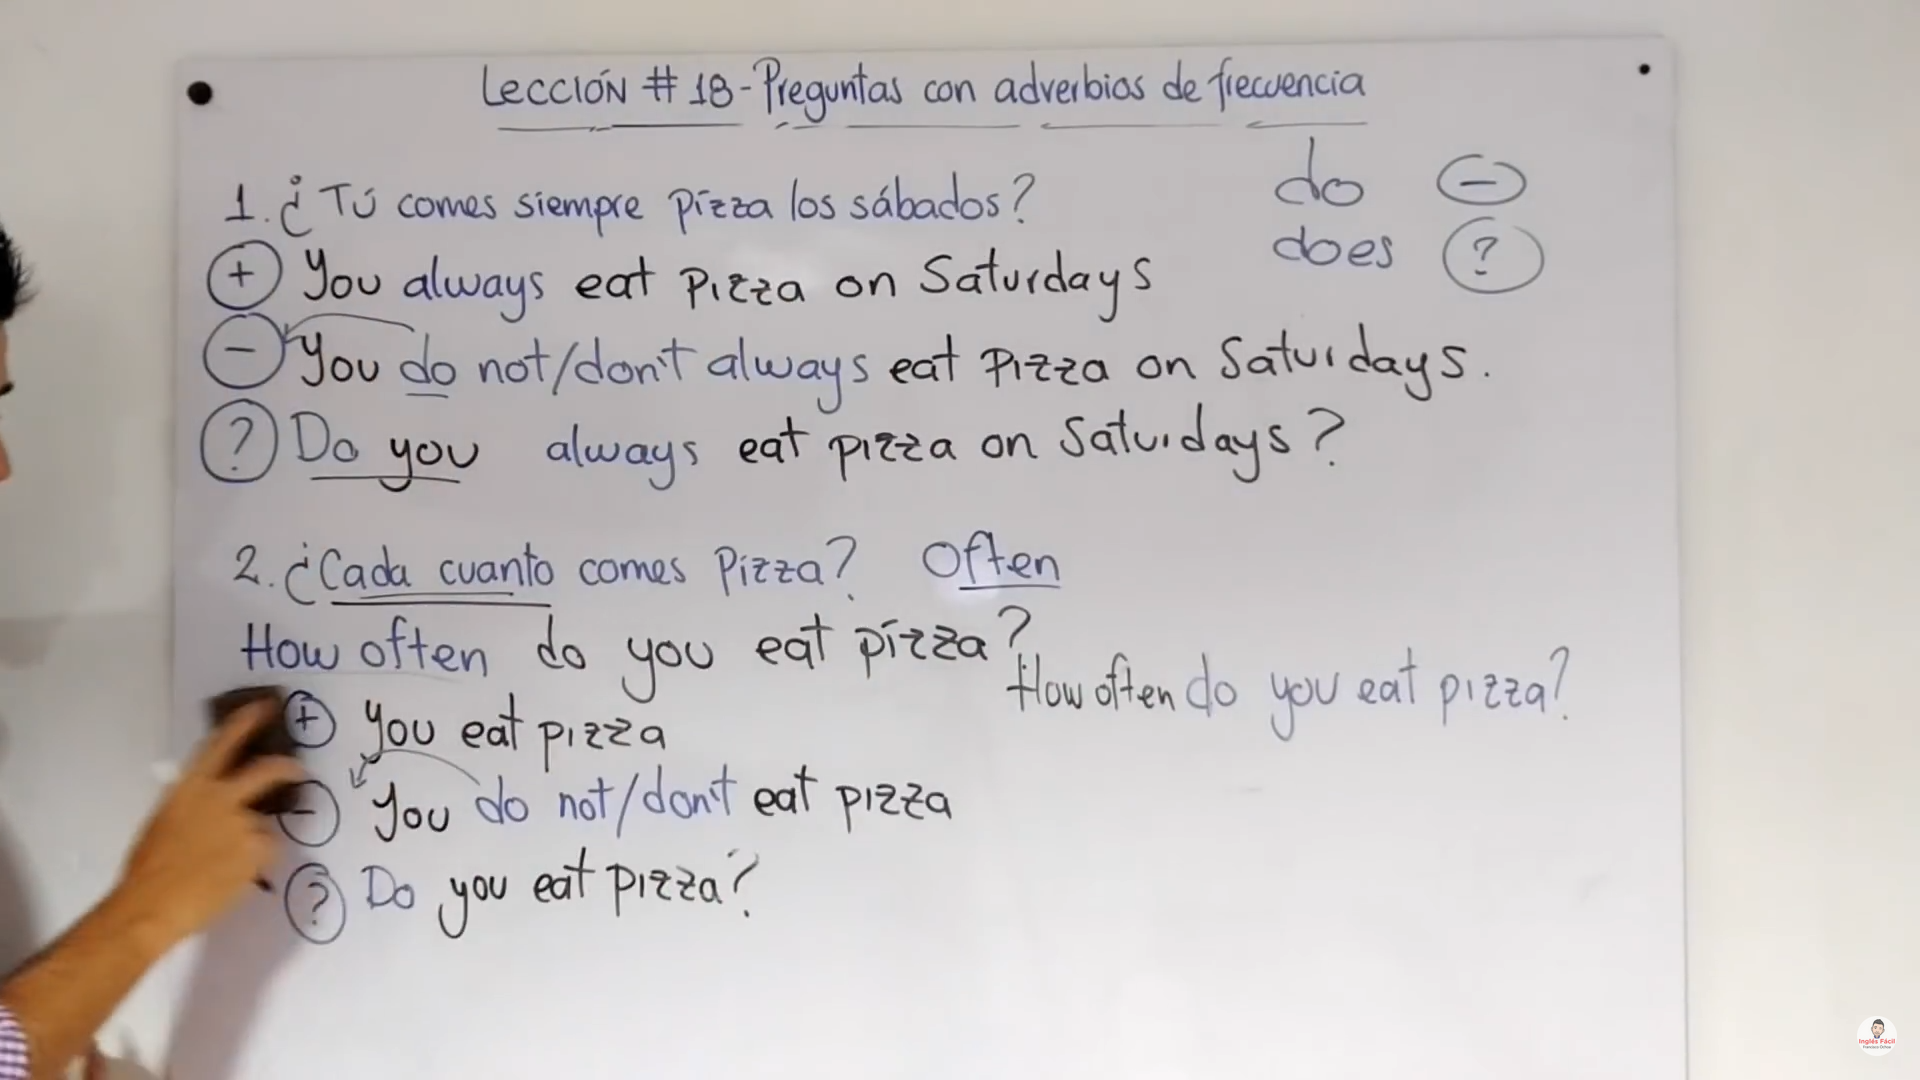 Lección # 18 - Preguntas con adverbios de frecuencia
do -
does ?
1. ¿Tú comes siempre pizza los sábados?
+ You always eat pizza on Saturdays
- You do not/don't always eat pizza on Saturdays.
? Do you always eat pizza on Saturdays?
2. ¿Cada cuanto comes pizza? Often
How often do you eat pizza?
How often do you eat pizza?
+ You eat pizza
- You do not/don't eat pizza
? Do you eat pizza?
Inglés Fácil